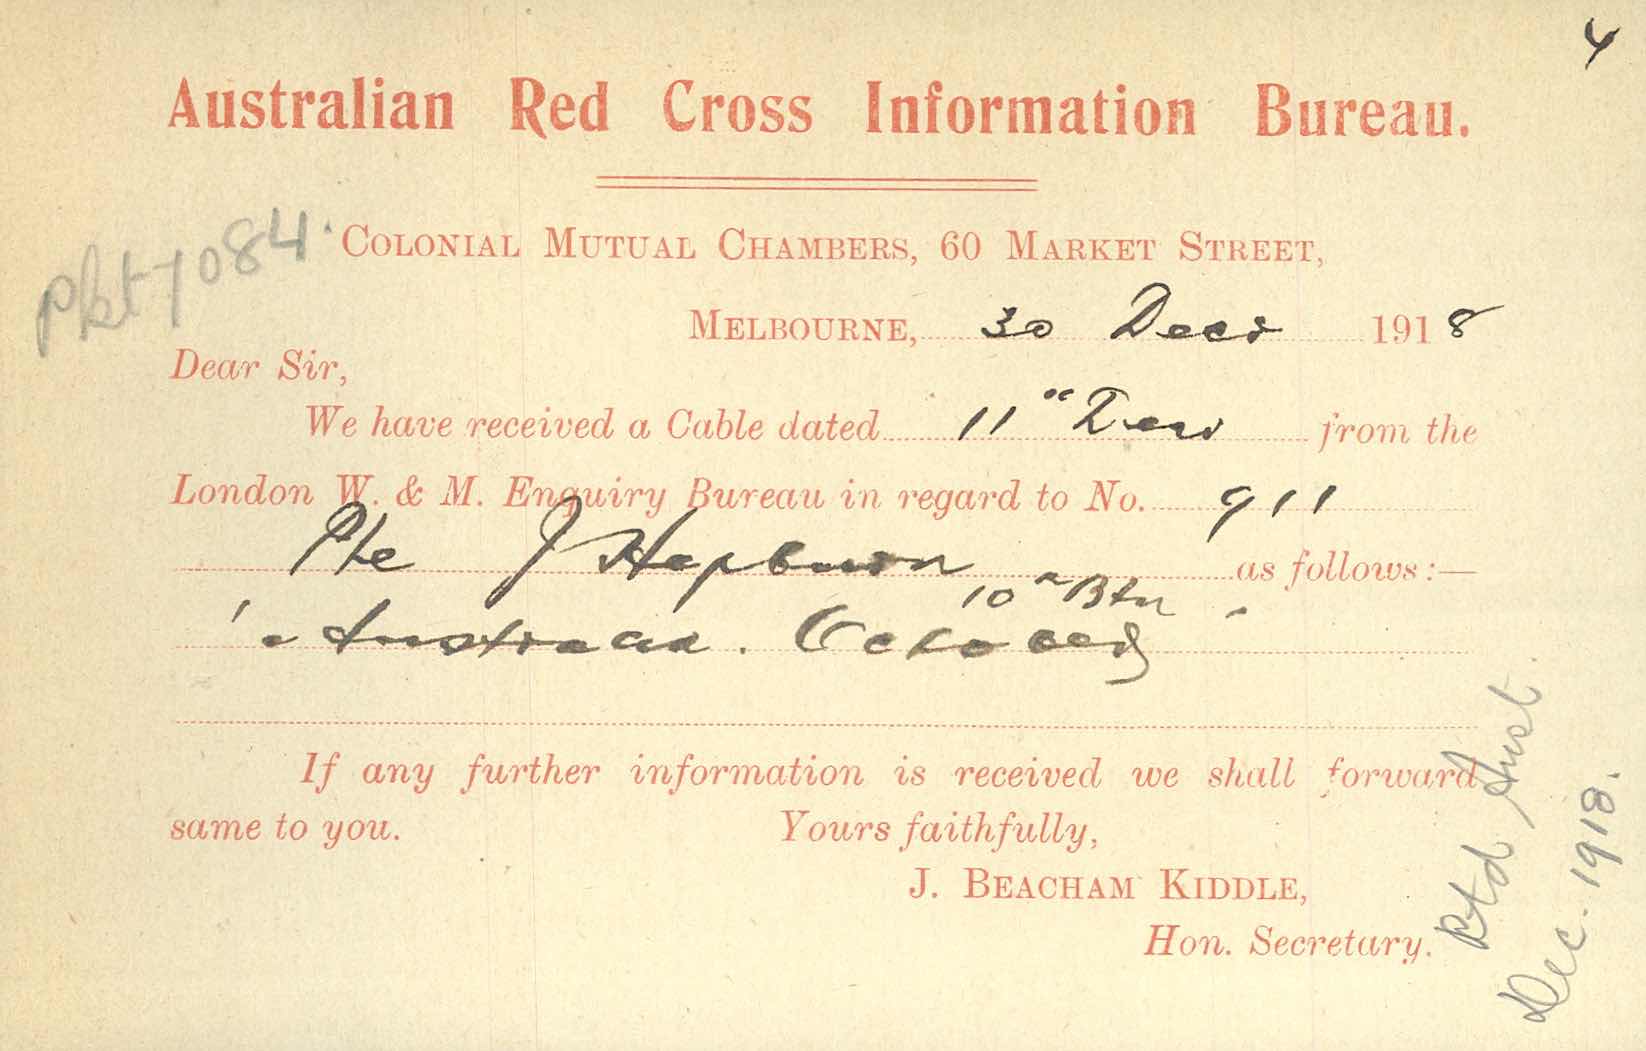 4
Australian Red Cross Information Bureau.
pkt 7084.
COLONIAL MUTUAL CHAMBERS, 60 MARKET STREET,
MELBOURNE, 30 Decr 1918
Dear Sir,
We have received a Cable dated 11" Decr from the
London W. & M. Enquiry Bureau in regard to No. 911
Pte J Hepburn as follows:—
10" Btn
Australia. October
If any further information is received we shall forward
same to you. Yours faithfully,
J. BEACHAM KIDDLE,
Hon. Secretary.
Rtd Aust.
Dec. 1918.